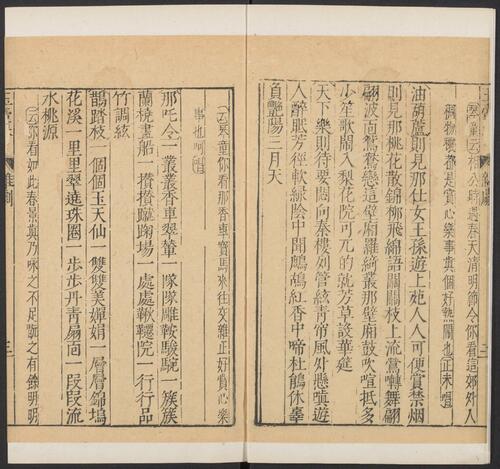 琴童云相公時遇春天清明節令你看這郊外人
稠物穰都是賞心樂事真個好熱鬧也正末唱
油葫蘆則見那仕女王孫遊上苑人人可便賞禁烟
則見那桃花散錦柳飛綿語關關枝上流鶯囀舞翩
翩波面鴛鴦戀這壁廂羅綺叢那壁廂鼓吹喧抵多
少笙歌鬧入梨花院可兀的就芳草設華筵
天下樂則待要悶向秦樓列管絃青帘風外懸嗔遊
人醉眠芳徑軟綠陰中聞鷓鴣紅香中啼杜鵑休辜
負艷陽三月天
云琴童你看那香車寶馬來往交雜正好賞心樂
事也呵唱
那吒令一叢叢香車翠輦一隊隊雕鞍駿一簇簇
蘭橈畫船一攢攢蹴踘場一處處鞦韆院一行行品
竹調絃
鵲踏枝一個個玉天仙一雙雙美嬋娟一層層錦塢
花溪一里里翠遶珠圈一步步丹青扇面一段段流
水桃源
云你看如此春景真乃咏之不足翫之有餘明明
雜劇
三